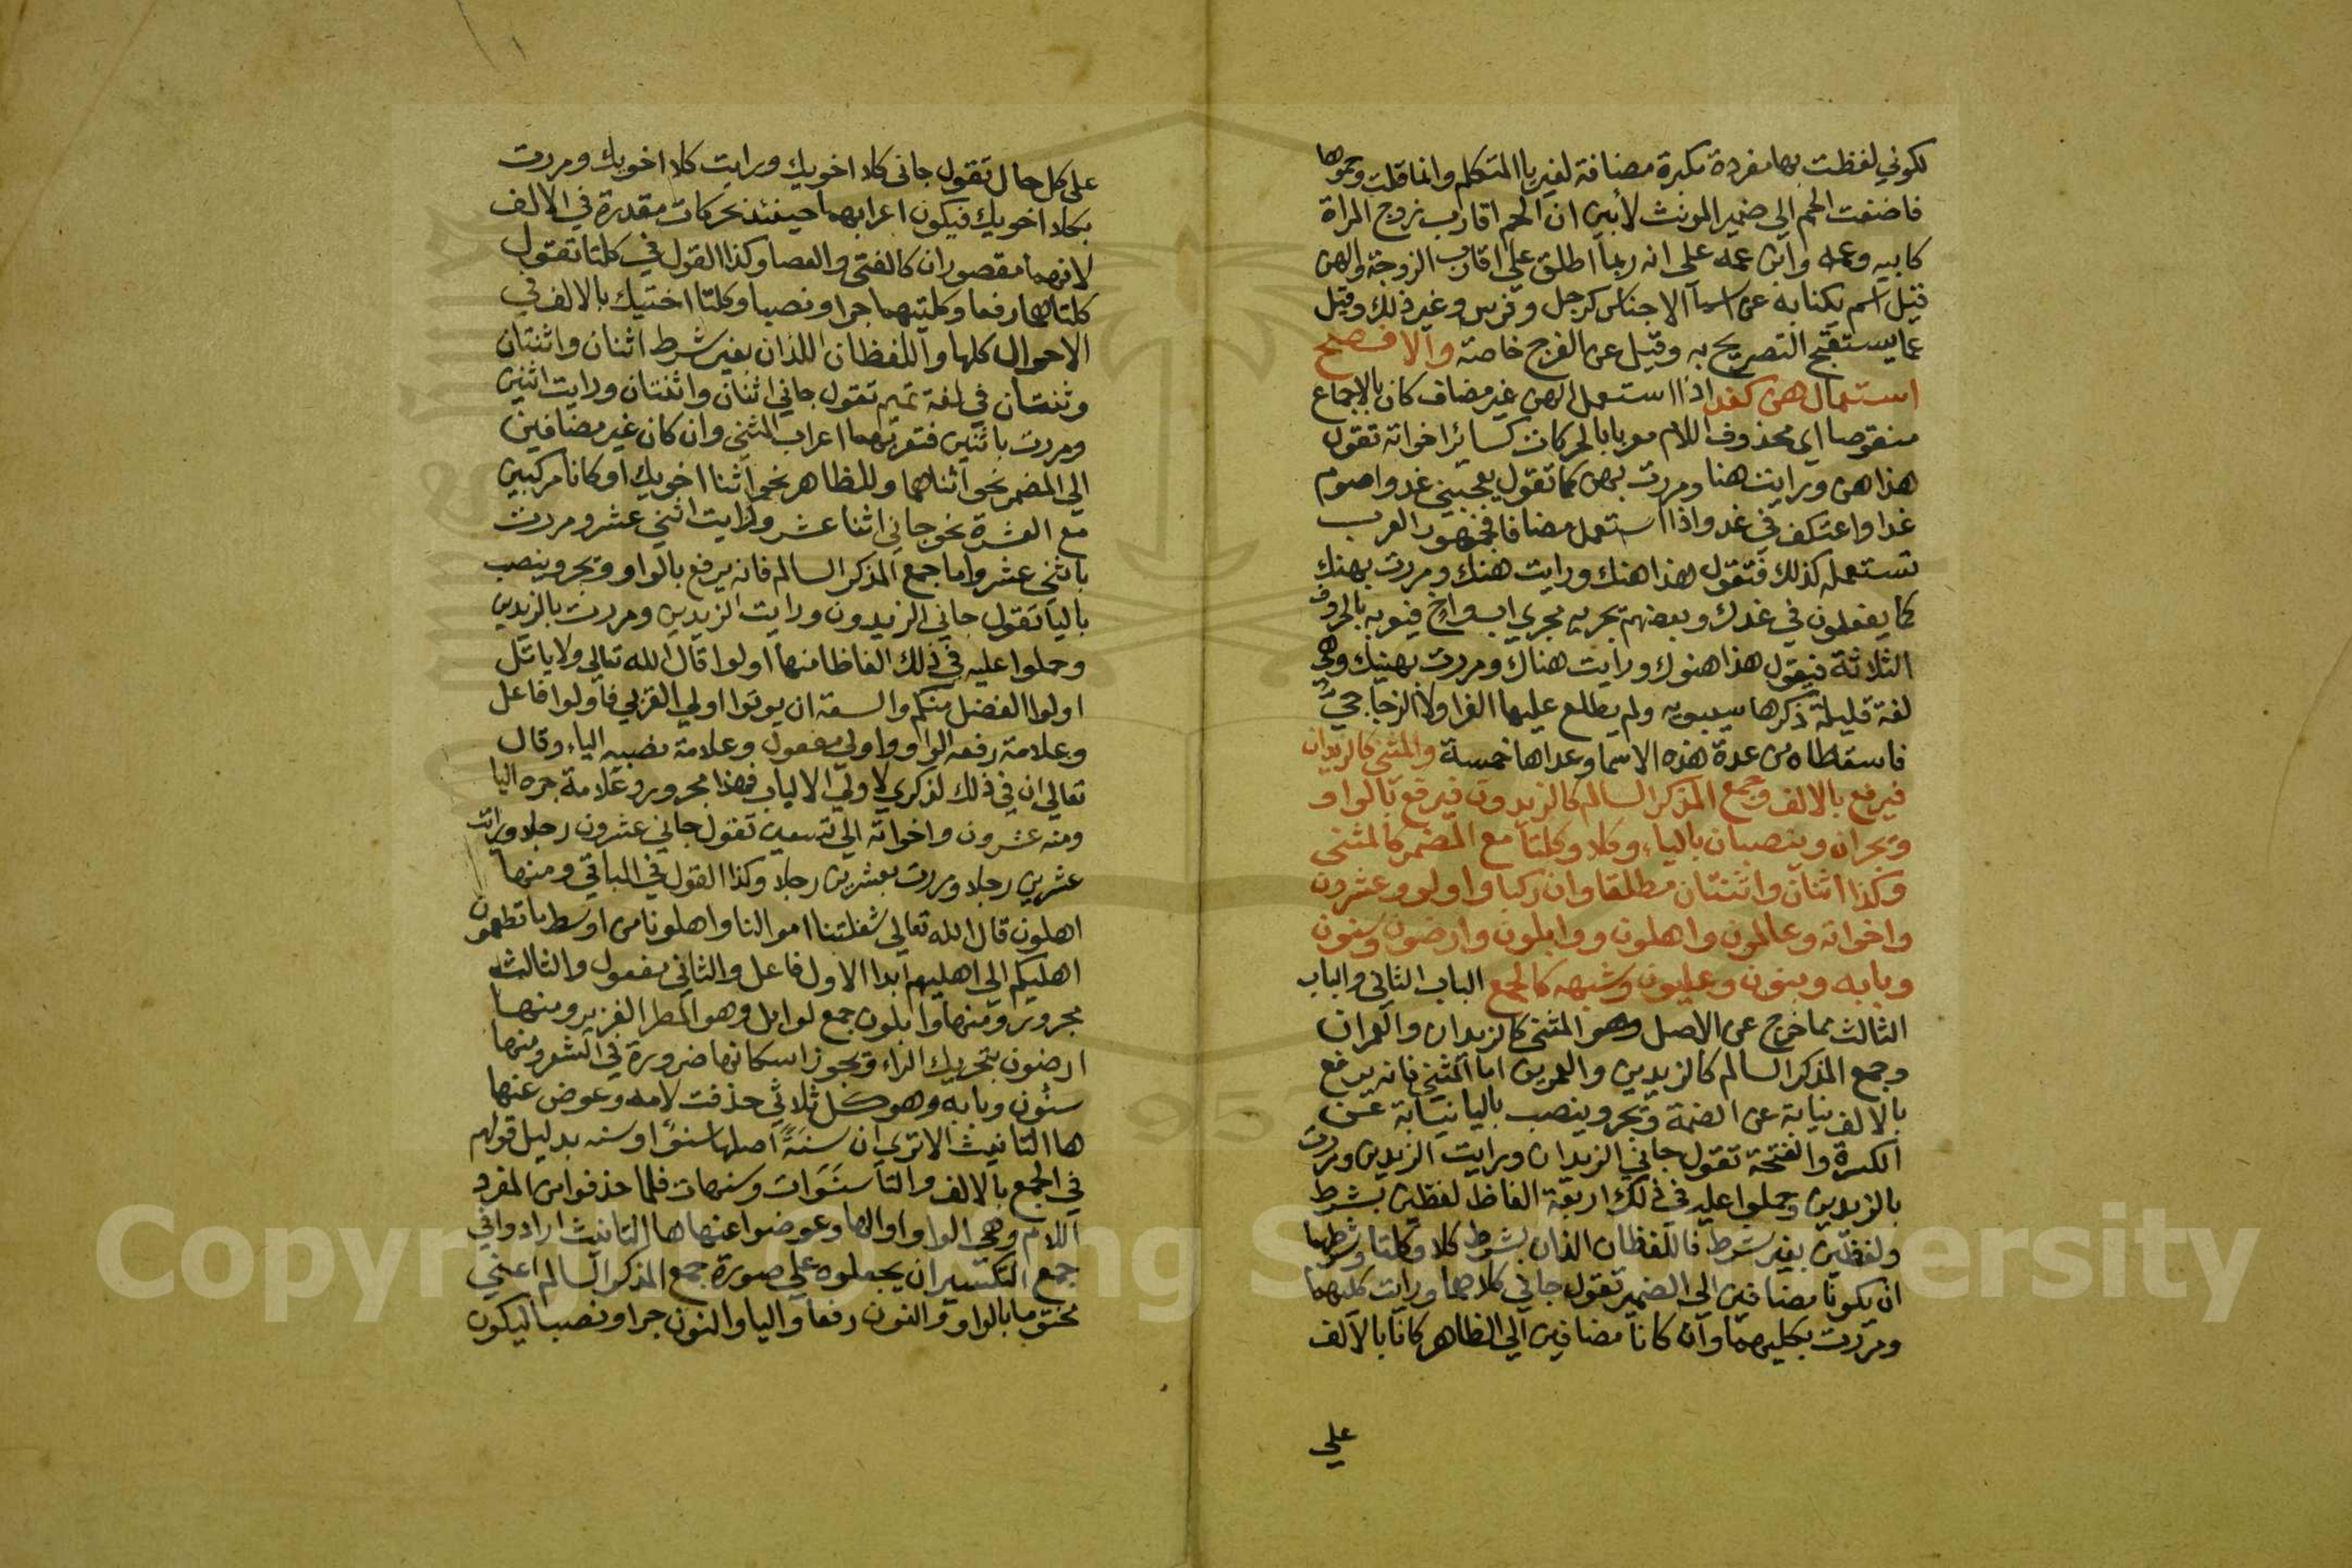 لكوني لفظت بها مفردة مكبرة مضافة لغير يا المتكلم وانما قلت وحموها
فاضفت الحم الى ضمير المونث لأبين ان الحم اقارب زوج المراة
كابيه وعمه وابن عمه على انه ربما اطلق على اقارب الزوجة والهن
قيل اسم يكنا به عن اسما الاجناس كرجل وفرس وغير ذلك وقيل
عما يستقبح التصريح به وقيل عن الفرج خاصة والافصح
استعمال هن كغد اذا استعمل الهن غير مضاف كان بالاجماع
منقوصا اي محذوف اللام معربا بالحركات كسائر اخواته تقول
هذا هن ورايت هنا ومررت بهن كما تقول يعجبني غد واصوم
غدا واعتكف في غد واذا استعمل مضافا فجمهور العرب
تستعمله كذلك فتقول هذا هنك ورايت هنك ومررت بهنك
كما يفعلون في غدك وبعضهم تجريه مجرى اب واخ فيعربه بالحروف
الثلاثة فيقول هذا هنوك ورايت هناك ومررت بهنيك وهي
لغة قليلة ذكرها سيبويه ولم يطلع عليها الفرا ولا الزجاجي
فاسقطاه من عدة هذه الاسما وعداها خمسة والمثنى كالزيدان
فيرفع بالالف وجمع المذكر السالم كالزيدون فيرفع بالواو
ويجران وينصبان بالياء وكلا وكلتا مع المضمر كالمثنى
وكذا اثنان واثنتان مطلقا وان ركبا واولو وعشرون
واخواته وعالمون واهلون ووابلون وارضون وسنون
وبابه وبنون وعليون وشبهه كالجمع الباب الثاني والباب
الثالث مما خرج عن الاصل وهو المثنى كالزيدان والعمران
وجمع المذكر السالم كالزيدين والعمرين اما المثنى فانه يرفع
بالالف نيابة عن الضمة ويجر وينصب باليا نيابة عن
الكسرة والفتحة تقول جاني الزيدان ورايت الزيدين ومررت
بالزيدين وحملوا عليه في ذلك اربعة الفاظ لفظين بشرط
ولفظين بغير شرط فاللفظان الذان بشرط كلا وكلتا وشرطهما
ان يكونا مضافين الى الضمير تقول جاني كلاهما ورايت كليهما
ومررت بكليهما وان كانا مضافين الى الظاهر كانا بالالف
على
على كل حال تقول جانى كلا اخويك ورايت كلا اخويك ومررت
بكلا اخويك فيكون اعرابهما حينئذ بحركات مقدرة في الالف
لانهما مقصوران كالفتى والعصا وكذا القول في كلتا تقول
كلتاهما رفعا وكلتيهما جرا ونصبا وكلتا اختيك بالالف في
الاحوال كلها واللفظان اللذان بغير شرط اثنان واثنتان
وثنتان في لغة تميم تقول جاني اثنان واثنتان ورايت اثنين
ومررت باثنين فتعربهما اعراب المثنى وان كان غير مضافين
الى المضمر نحو اثناهما وللظاهر نحو اثنا اخويك او كانا مركبين
مع العشرة نحو جاني اثنا عشر ورايت اثنى عشر ومررت
باثني عشر واما جمع المذكر السالم فانه يرفع بالواو ويجر وينصب
باليا تقول جاني الزيدون ورايت الزيدين ومررت بالزيدين
وحملوا عليه في ذلك الفاظا منها اولوا قال الله تعالى ولا ياتل
اولوا الفضل منكم والسعة ان يوتوا اولي القربي فاولوا فاعل
وعلامة رفعه الواو واولي مفعول وعلامة نصبه الياء وقال
تعالي ان في ذلك لذكري لاولي الالباب فهذا مجرور وعلامة جره اليا
ومنه عشرون واخواته الى تسعين تقول جاني عشرون رجلا ورايت
عشرين رجلا ومررت بعشرين رجلا وكذا القول في الباقي ومنها
اهلون قال الله تعالى شغلتنا اموالنا واهلونا من اوسط ما تطعمون
اهليكم الى اهليهم ابدا الاول فاعل والثاني مفعول والثالث
مجرور ومنها وابلون جمع لوابل وهو المطر الغزير ومنها
ارضون بتحريك الراء ويجوز اسكانها ضرورة في الشعر ومنها
سنون وبابه وهو كل ثلاثي حذفت لامه وعوض عنها
ها التانيث الا ترى ان سنة اصلها سنو او سنه بدليل قولهم
في الجمع بالالف والتا سنوات وسنهات فلما حذفوا من المفرد
اللام وهي الواو او الها وعوضوا عنها ها التانيث ارادوا في
جمع التكسير ان يجعلوه على صورة جمع المذكر السالم اعني
مختوما بالواو والنون رفعا واليا والنون جرا ونصبا ليكون